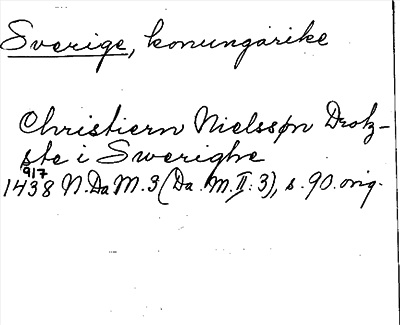 Sverige, konungarike
Christiern Nielssøn Drotz-
ste i Swerighe
9/7
1438 N.Da M.3 (Da. M.II:3), s.90. orig.